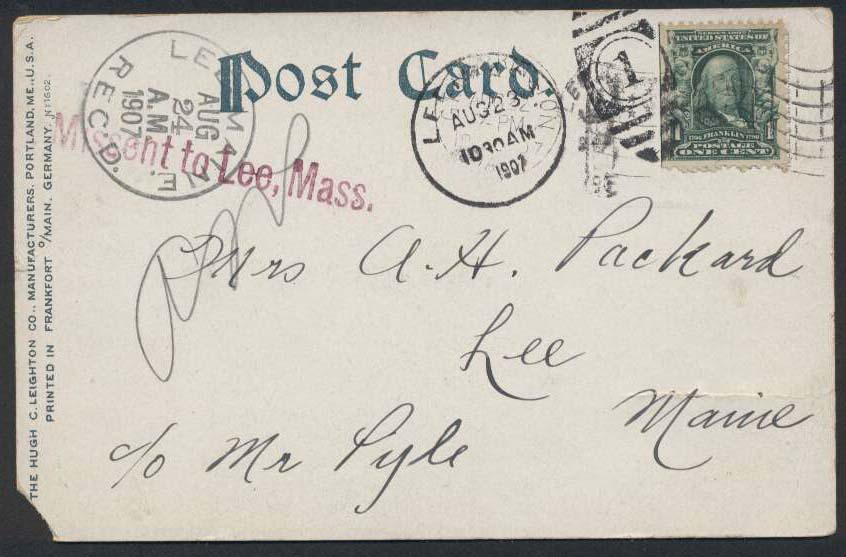 Post Card.
THE HUGH C. LEIGHTON CO., MANUFACTURERS, PORTLAND, ME., U.S.A.
PRINTED IN FRANKFORT O/MAIN, GERMANY. N11602
LEE MAINE
AUG
24
A.M
1907
REC'D.
Missent to Lee, Mass.
AUG 23
10 30 AM
1907
1
SERIES 1902
UNITED STATES OF
AMERICA
1790 FRANKLIN 1706
POSTAGE
ONE CENT
Mrs A. H. Packard
Lee
Maine
c/o Mr Pyle